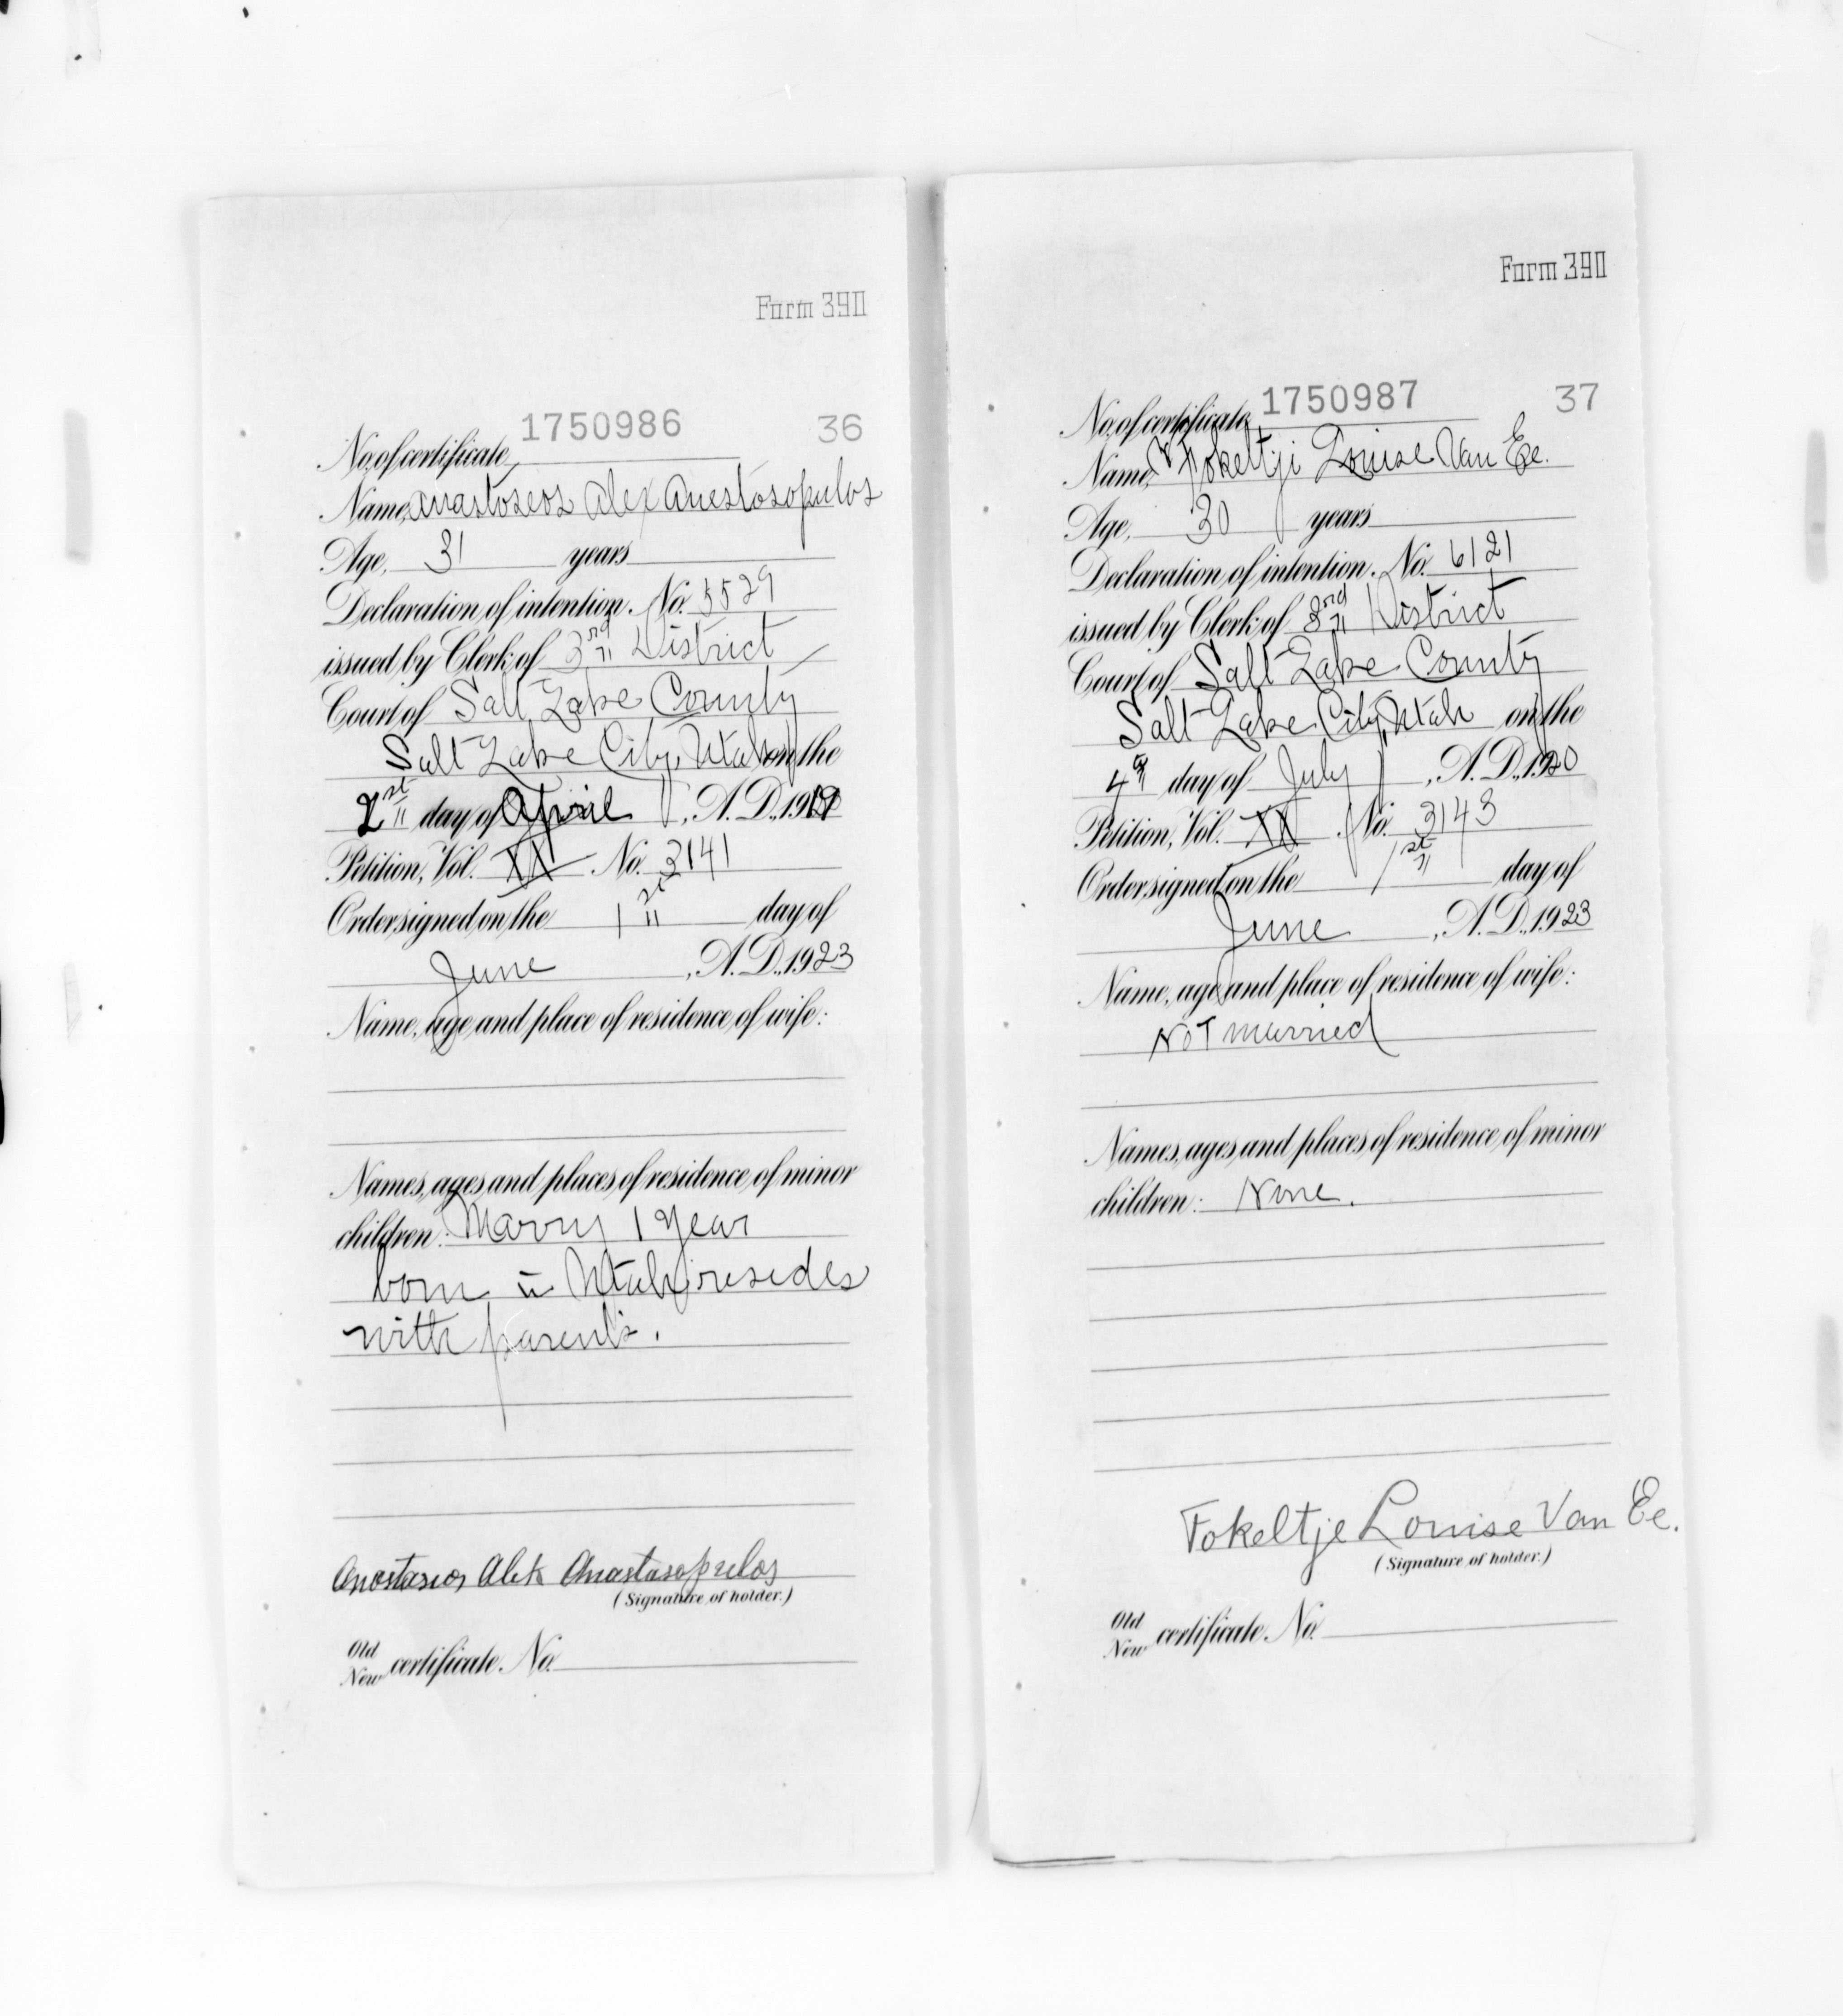 Form 390
1750986 36
No. of certificate,
Name, Anastoseos Alex Anestosopulos
Age, 31 years
Declaration of intention, No. 5529
issued by Clerk of 3rd District
Court of Salt Lake County
Salt Lake City, Utah on the
day of April, A. D., 1919
Petition, Vol. XX No. 3141
Order signed on the 1st day of
June, A. D., 1923
Name, age and place of residence of wife:
Names, ages and places of residence of minor
children: Marry 1 year
born in Utah resides
with parents.
Anastasios Alek Anastasopulos
(Signature of holder.)
Old
New certificate No.
Form 390
1750987 37
No. of certificate,
Name, Fokeltji Louise Van Ee.
Age, 30 years
Declaration of intention, No. 6121
issued by Clerk of 3rd District
Court of Salt Lake County
Salt Lake City, Utah on the
day of July, A. D., 1920
Petition, Vol. XX No. 3143
Order signed on the 1st day of
June, A. D., 1923
Name, age and place of residence of wife:
Not married
Names, ages and places of residence of minor
children: None.
Fokeltje Louise Van Ee.
(Signature of holder.)
Old
New certificate No.